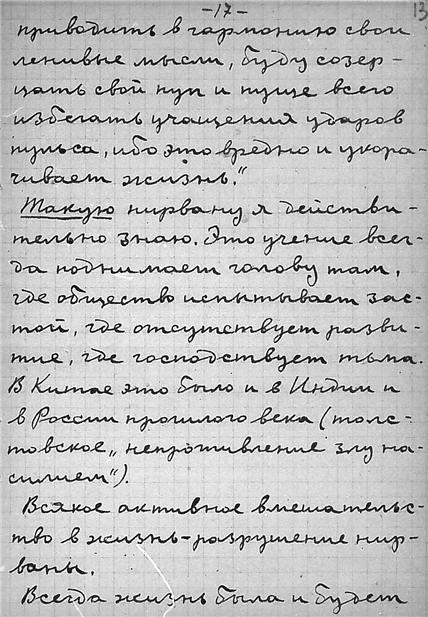 -17-
13
приводить в гармонию свои
ленивые мысли, буду созер-
цать свой пуп и пуще всего
избегать учащения ударов
пульса, ибо это вредно и укора-
чивает жизнь."
Такую нирвану я действи-
тельно знаю. Это учение всег-
да поднимает голову там,
где общество испытывает зас-
той, где отсутствует разви-
тие, где господствует тьма.
В Китае это было и в Индии и
в России прошлого века (толс-
товское „непротивление злу на-
силием").
Всякое активное вмешательс-
тво в жизнь-разрушение нир-
ваны.
Всегда жизнь была и будет